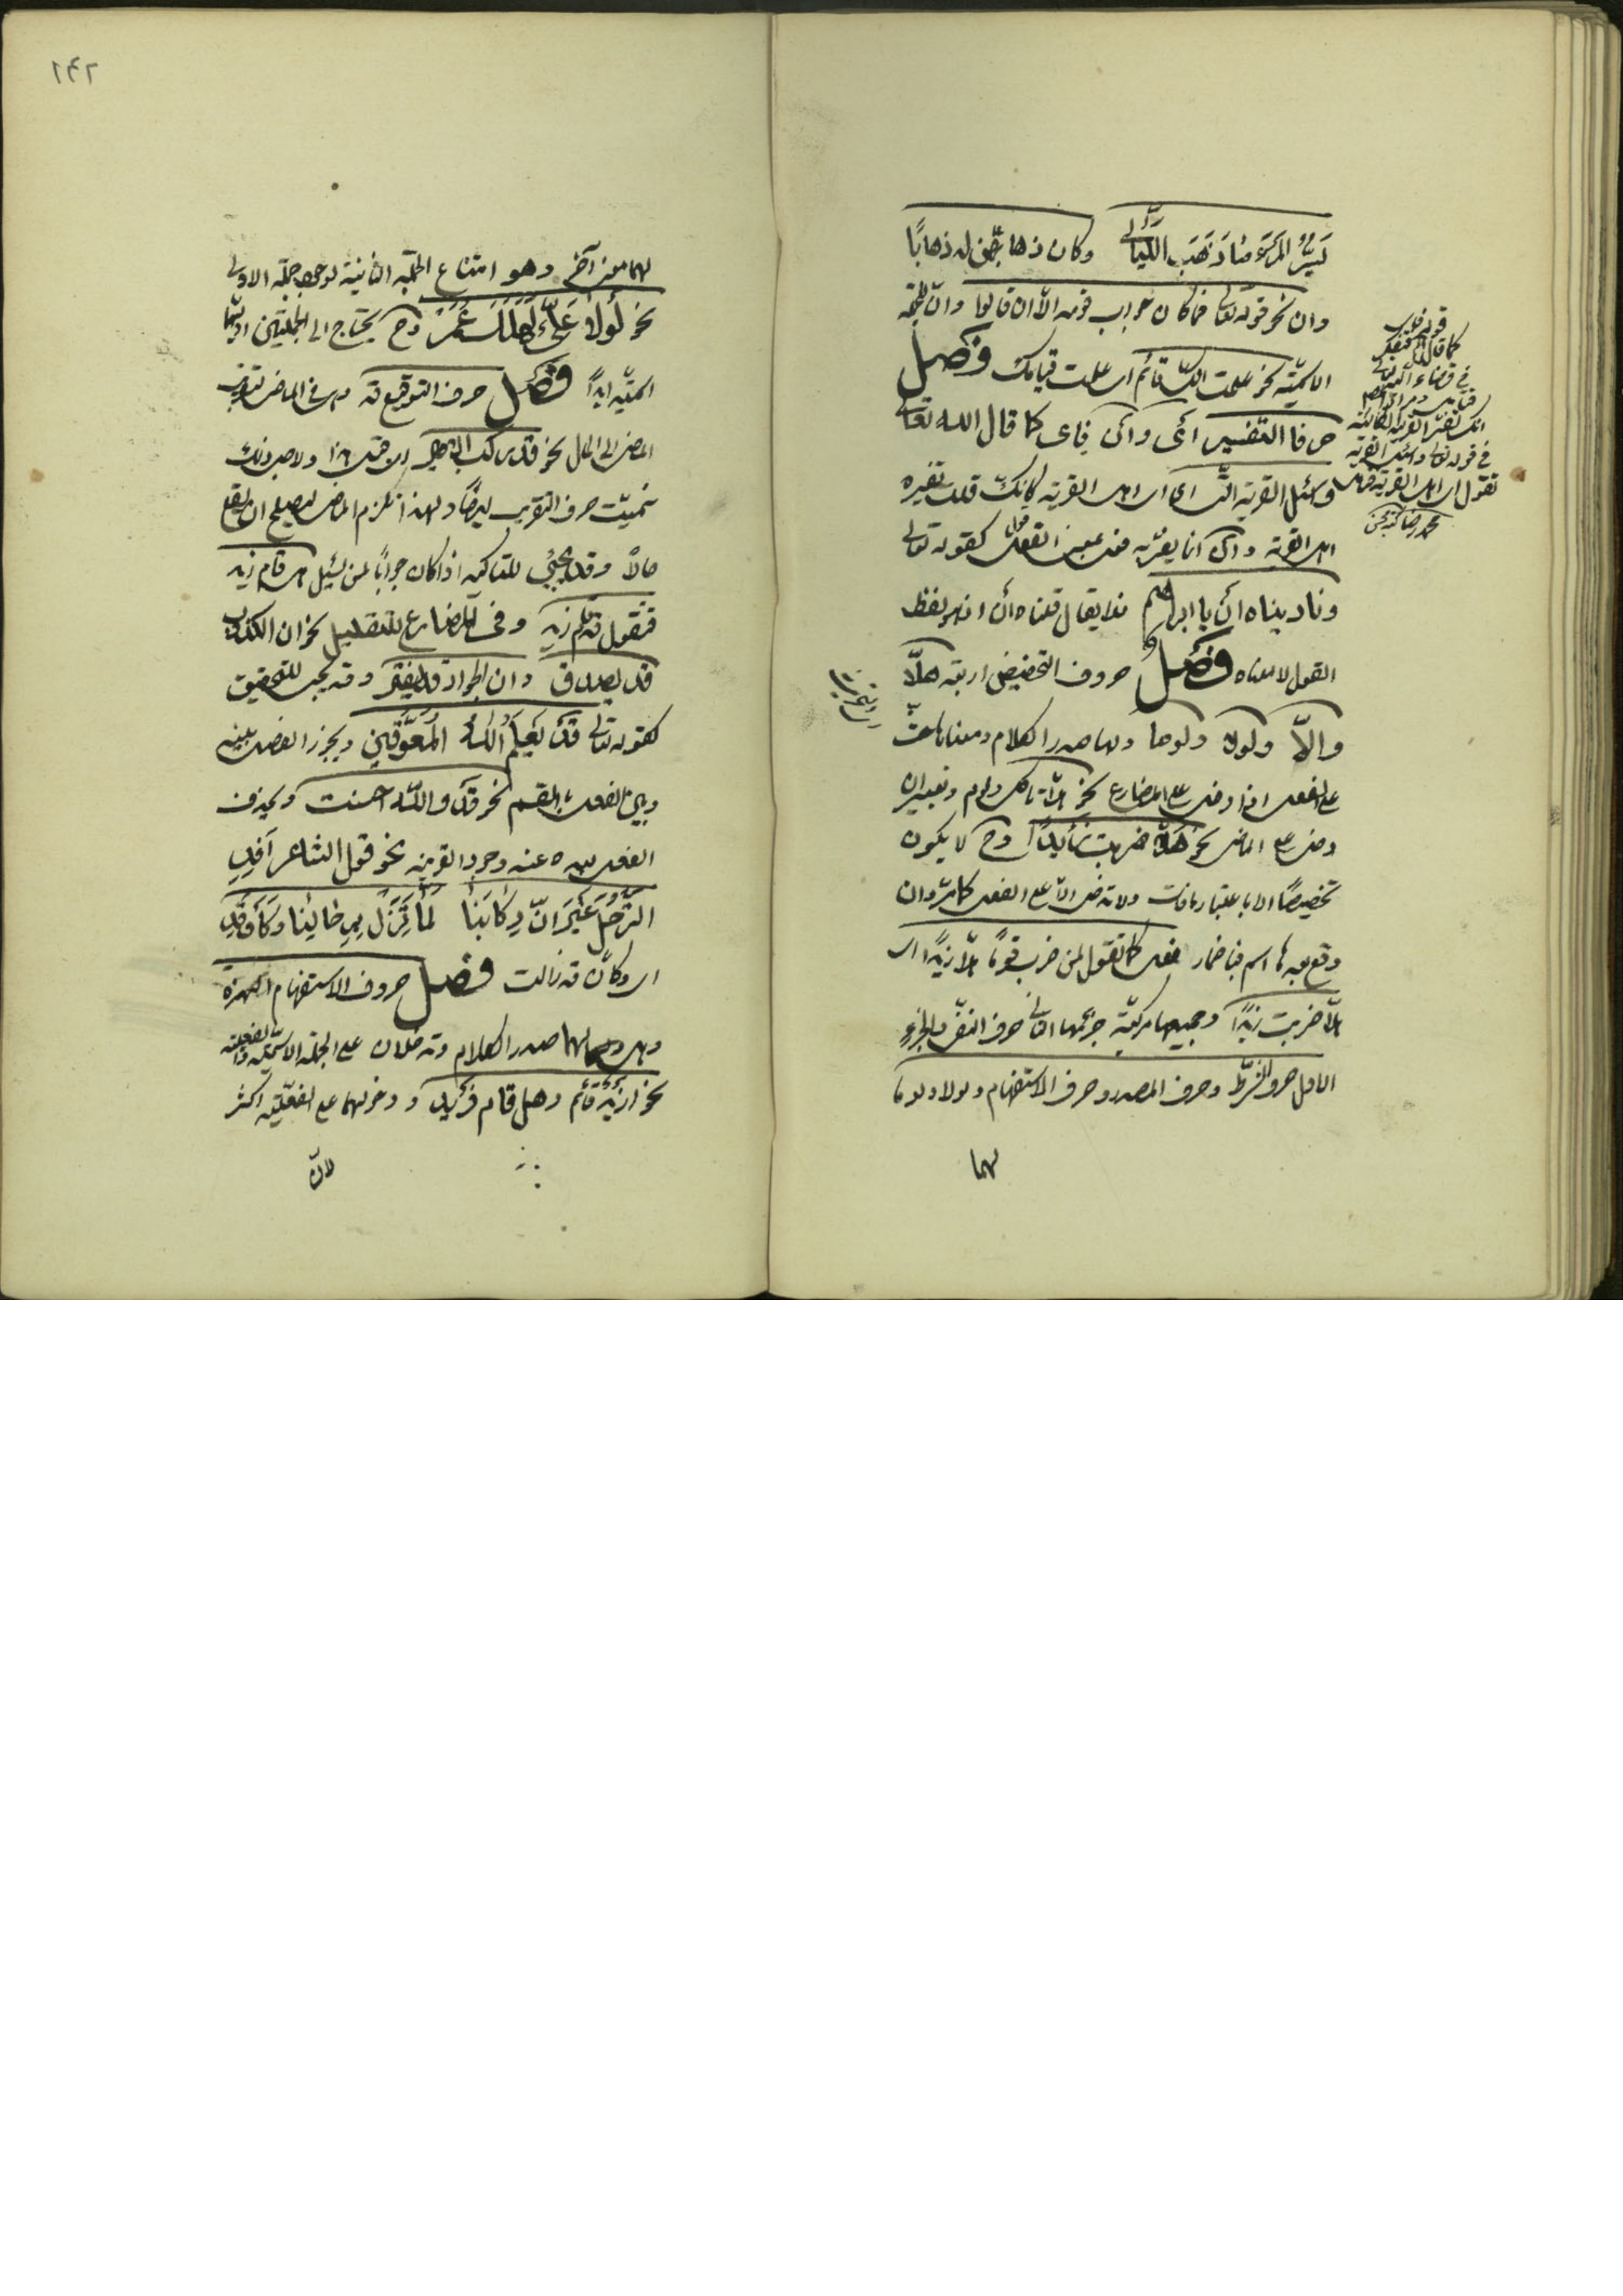 يَسُرُّ المَرْءَ مَا ذَهَبَ اللَّيَالِي وكان ذهابهن له ذهابًا
وان نحو قوله تعالى فما كان جواب قومه الا ان قالوا وانّ للجملة
الاسميّة نحو علمت انّك قائم اى علمت قيامك فصل
حرفا التفسير اى وان فاى كما قال الله تعالى
وسئل القرية الّتى اى اهل القرية كانك قلت تفسيره
اهل القرية وان انما يفسّر به فعل بمعنى القول كقوله تعالى
وناديناه ان يا ابراهيم فلا يقال قلناه ان اذ هو لفظ
القول لا معناه فصل حروف التحضيض اربعة هلّا
والاّ ولولا ولوما ولها صدر الكلام ومعناها حثّ
على الفعل اذا دخل على المضارع نحو هلّا تاكل ولوم وتعيير ان
دخل على الماضى نحو هلّا ضربت زيدًا وح لا يكون
تحضيضًا الا باعتبار ما فات ولا تدخل الّا على الفعل كما مرّ وان
وقع بعدها اسم فباضمار فعل كما تقول لمن ضرب قومًا هلّا زيدًا اى
هلّا ضربت زيدًا وجميعها مركّبة جزءها الثانى حرف النفى والجزء
الاول حرف الشرط وحرف المصدر وحرف الاستفهام ولولا ولوما
لهما
كما قال
فى قوله تعالى واسئل القرية
تقول اى اهل القرية
لهما معنى آخر وهو امتناع الجملة الثانية لوجود جملة الاولى
نحو لَولا عَلِىٌّ لَهَلَكَ عُمَرُ وح يحتاج الى الجملتين اوليهما
اسميّة ابدًا فصل حرف التوقع قد وهى فى الماضى لتقريب
الماضى الى الحال نحو قد ركب الامير اى قبيل هذا ولاجل ذلك
سمّيت حرف التقريب ايضًا ولهذا تلزم الماضى ليصلح ان يقع
حالًا وقد يجئ للتاكيد اذا كان جوابًا لمن يسئل هل قام زيد
فتقول قد قام زيد وفى المضارع للتقليل نحو ان الكذوب
قد يصدق وان الجواد قد يفتر وقد يجئ للتحقيق
كقوله تعالى قَدْ يَعْلَمُ اللهُ المُعَوِّقِينَ ويجوز الفصل بينه
وبين الفعل بالقسم نحو قد والله احسنت ويحذف
الفعل بعده عند وجود القرينة نحو قول الشاعر أَفِدَ
التَّرَحُّلُ غَيْرَ اَنَّ رِكَابَنَا لَمَّا تَزَلْ بِرِحَالِنَا وَكَأَنْ قَدِ
اى وكان قد زالت فصل حروف الاستفهام الهمزة
وهل ولهما صدر الكلام وتدخلان على الجملة الاسميّة والفعلية
نحو ازيد قائم وهل قام زيد ودخولهما على الفعلية اكثر
لانّ